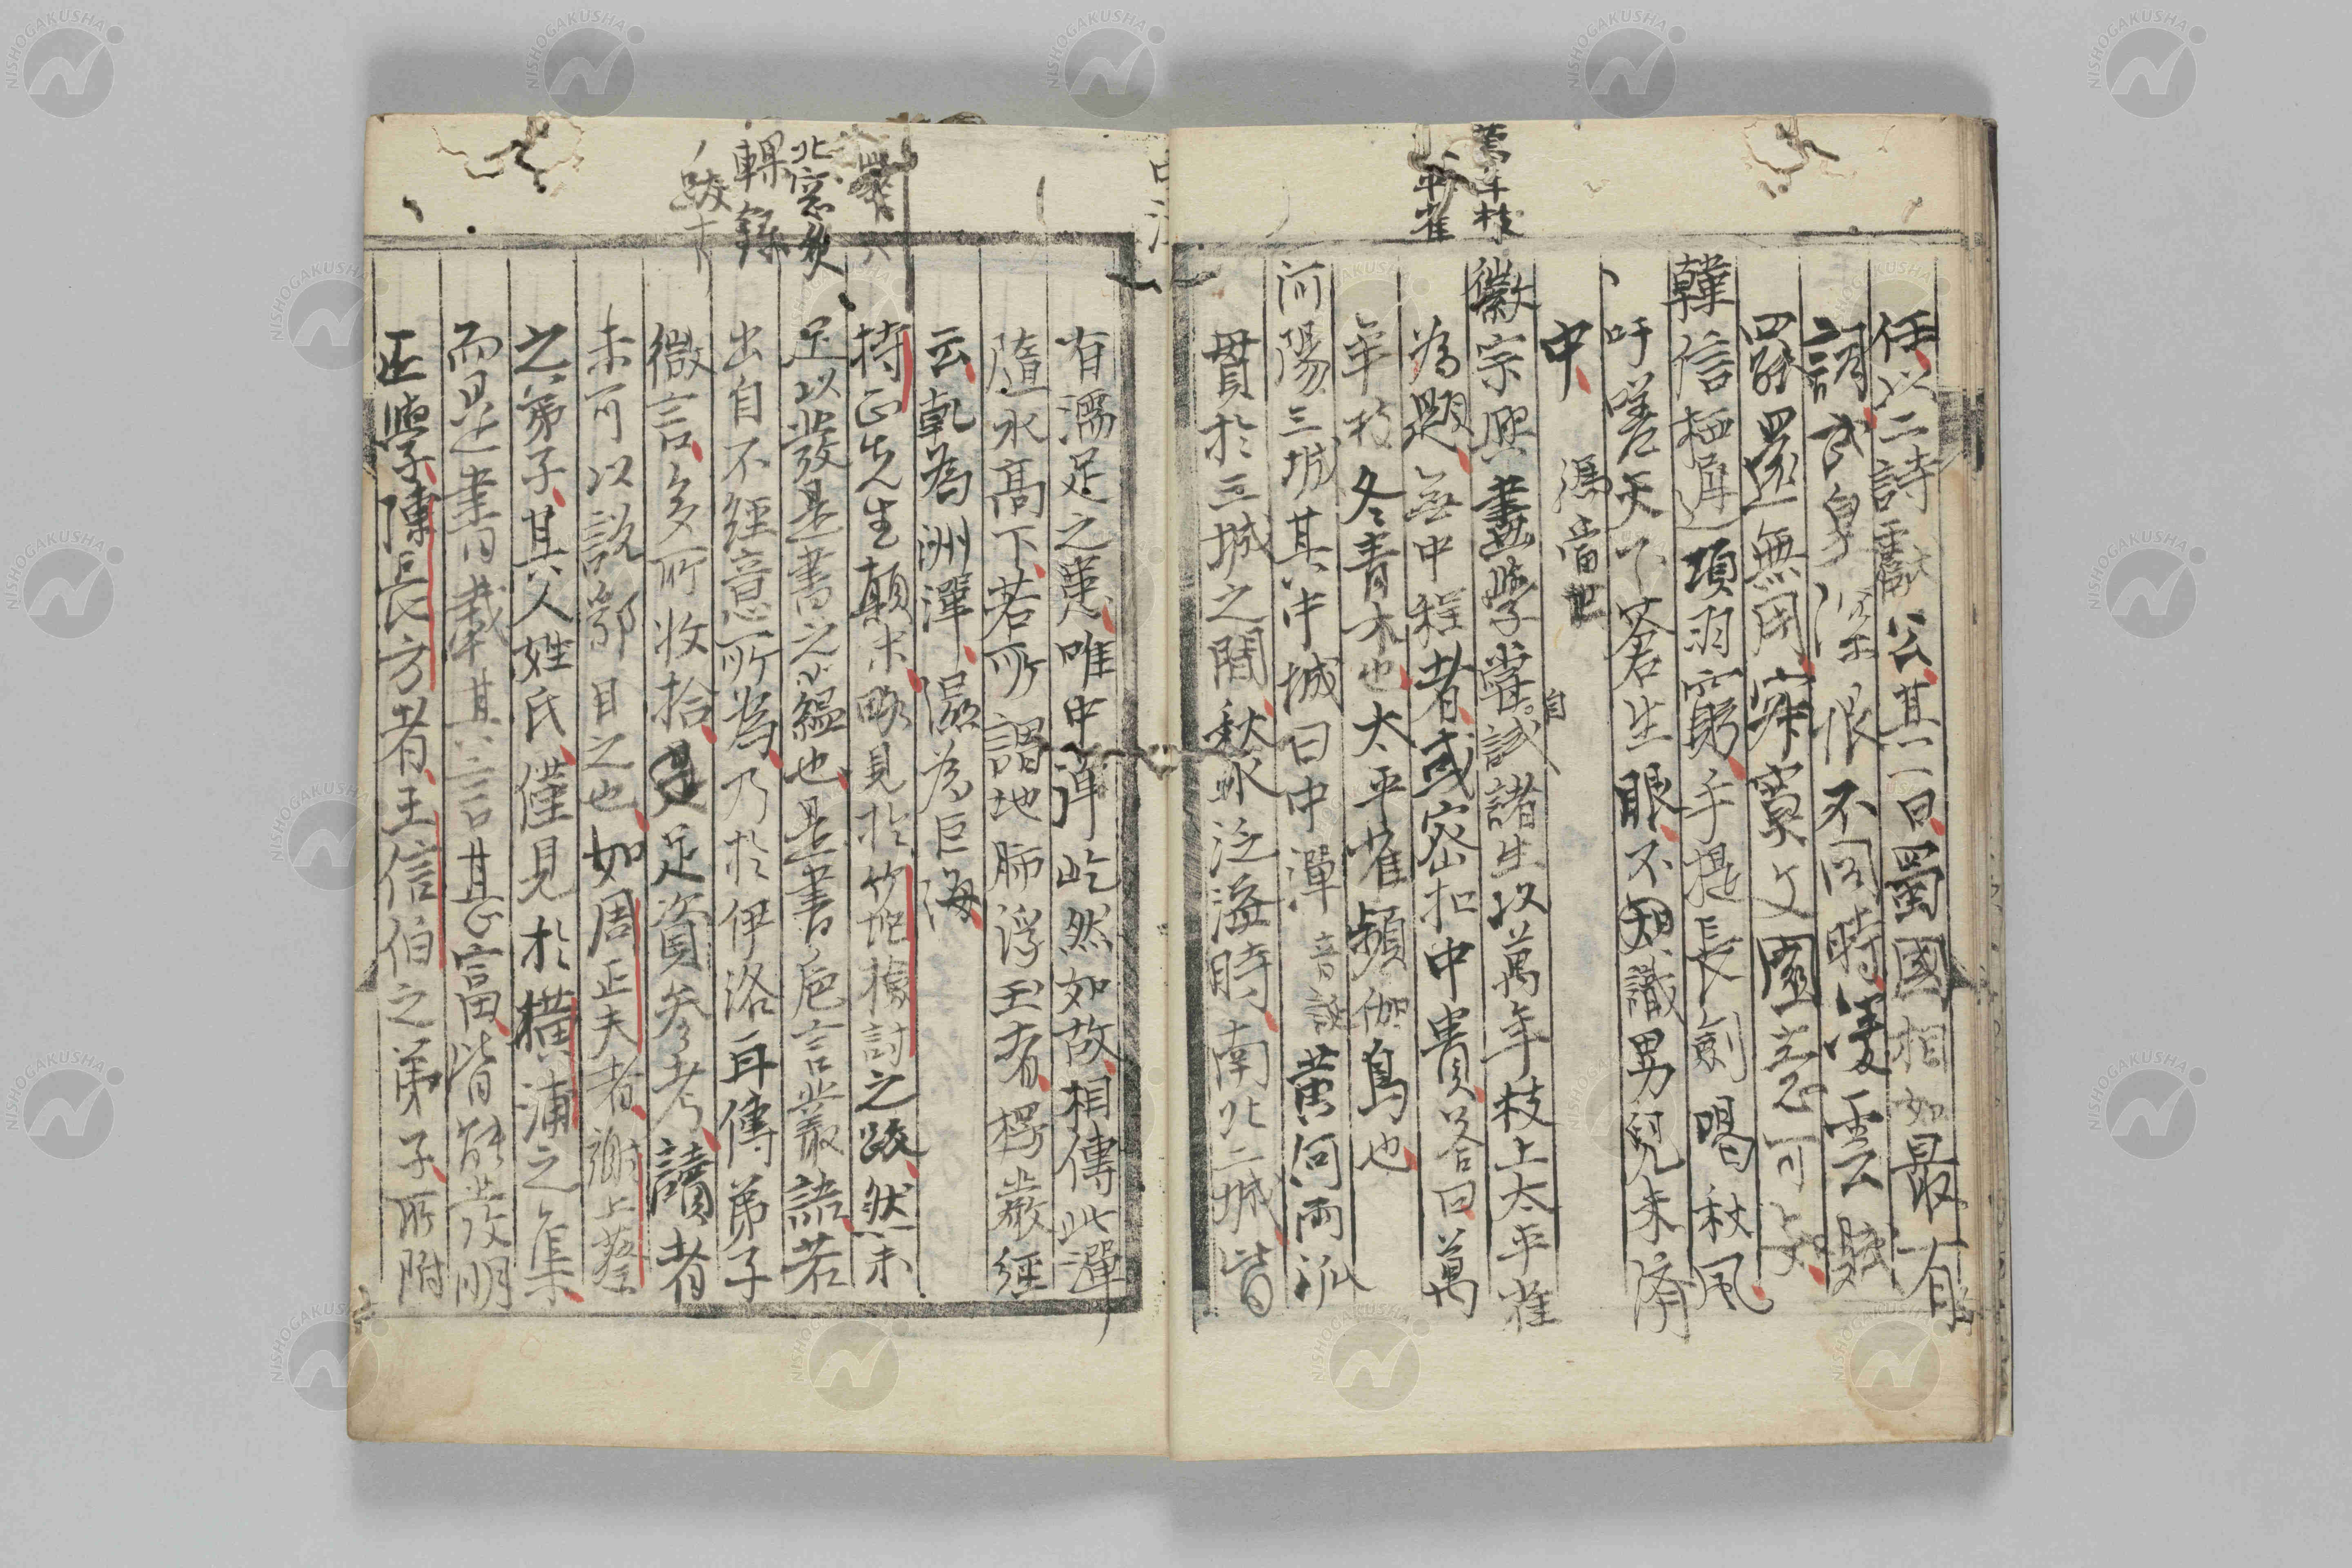 萬年枝
太平雀
任以二詩獻公其一曰蜀國相如最有
詞武皇深恨不同時凌雲賦
四壁無用寂寞文園意可知
韓信栖遲項羽窮手提長劍喝秋風
吁嗟天下蒼生眼不知識男兒未濟
中 馮當世
徽宗興畫學嘗自試諸生以萬年枝上太平雀
為題無中程者或密扣中貴答曰萬
年枝冬青木也太平雀頻伽鳥也
河陽三城其中城曰中潬 音誕 黄河兩派
貫於三城之間秋水泛溢時南北二城皆
有濡足之患唯中潬屹然如故相傳此潬
隨水高下若所謂地肺浮玉者楞嚴經
云乾為洲潬濕為巨海
北窓炙
輠錄
跋
持正先生顛末略見於竹垞檢討之跋然未
足以發是書之蘊也是書巵言叢語若
出自不經意所為乃於伊洛再傳弟子
微言多所收拾是足資參考讀者
未可以說部目之也如周正夫者謝上蔡
之弟子其人姓氏僅見於橫浦之集
而是書載其言甚富皆能發明
正學陳長方者王信伯之弟子所附